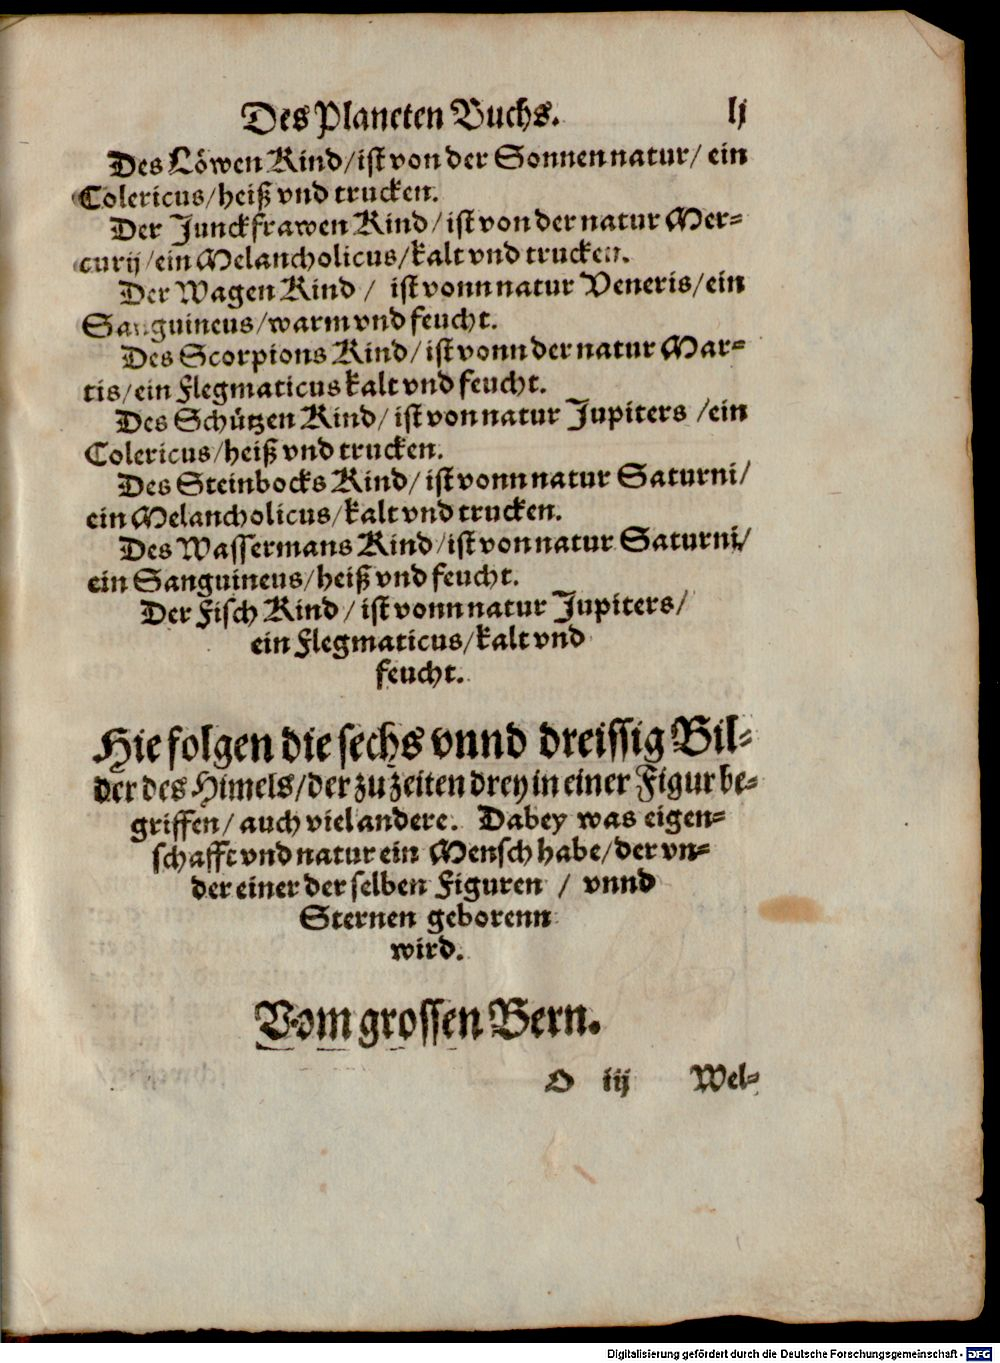 Des Planeten Buchs. lj
Des Löwen Kind/ist von der Sonnen natur/ ein
Colericus/heiß vnd trucken.
Der Junckfrawen Kind/ist von der natur Mer-
curij/ein Melancholicus/kalt vnd trucken.
Der Wagen Kind/ ist vonn natur Veneris/ein
Sanguineus/warm vnd feucht.
Des Scorpions Kind/ist vonn der natur Mar-
tis/ein Flegmaticus kalt vnd feucht.
Des Schützen Kind/ist von natur Jupiters /ein
Colericus/heiß vnd trucken.
Des Steinbocks Kind/ist vonn natur Saturni/
ein Melancholicus/kalt vnd trucken.
Des Wassermans Kind/ist von natur Saturni/
ein Sanguineus/heiß vnd feucht.
Der Fisch Kind/ist vonn natur Jupiters/
ein Flegmaticus/kalt vnd
feucht.
Hie folgen die sechs vnnd dreissig Bil-
der des Himels/der zu zeiten drey in einer Figur be-
griffen/ auch viel andere. Dabey was eigen-
schafft vnd natur ein Mensch habe/der vn-
der einer der selben Figuren / vnnd
Sternen geborenn
wird.
Vom grossen Bern.
O iij Wel-
Digitalisierung gefördert durch die Deutsche Forschungsgemeinschaft - DFG